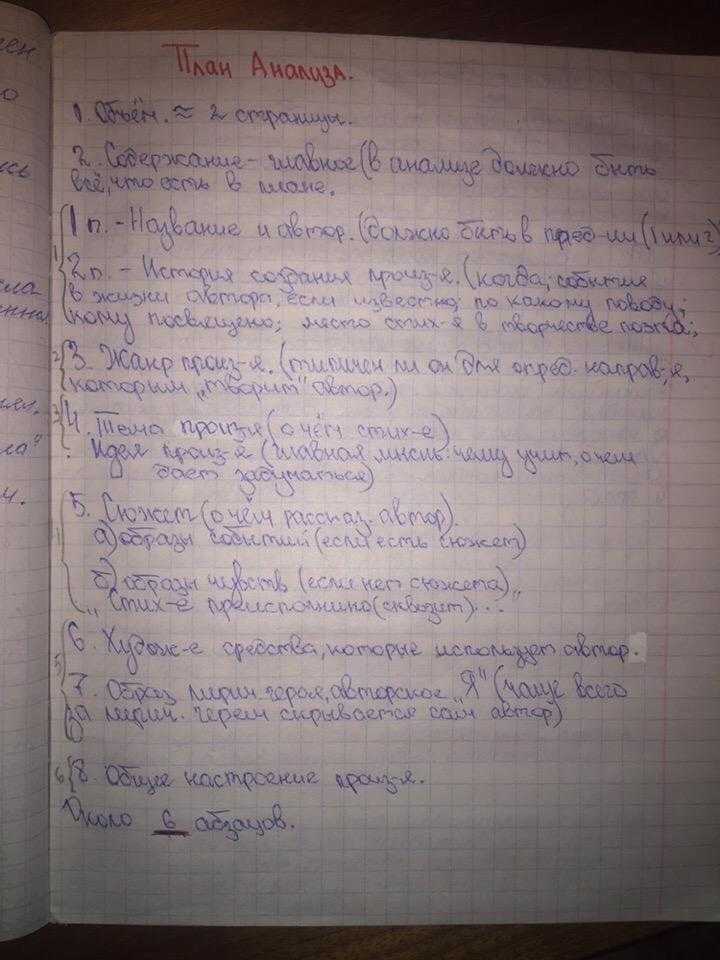 План Анализа.
1. Объём. ≈ 2 страницы.
2. Содержание – главное (в анализе должно быть
всё, что есть в плане.
1 п. – Название и автор. (должно быть в пред-ии (1 или 2)
1 2 п. – История создания произ-я. (когда; события
в жизни автора, если известно; по какому поводу;
кому посвящено; место стих-я в творчестве поэта;
2 3. Жанр произ-я. (типичен ли он для опред. направ-я,
которым „творит" автор.)
3 4. Тема произ-я (о чём стих-е)
Идея произ-я (главная мысль: чему учит, о чем
даёт задуматься)
5. Сюжет (о чём рассказ. автор).
4 а) образы событий (если есть сюжет)
б) образы чувств (если нет сюжета)
„Стих-е преисполнено (сквозит)...
6. Худож-е средства, которые использует автор.
5 7. Образ лирич. героя, авторское „Я" (чаще всего
за лирич. героем скрывается сам автор)
6 8. Общее настроение произ-я.
Около 6 абзацов.